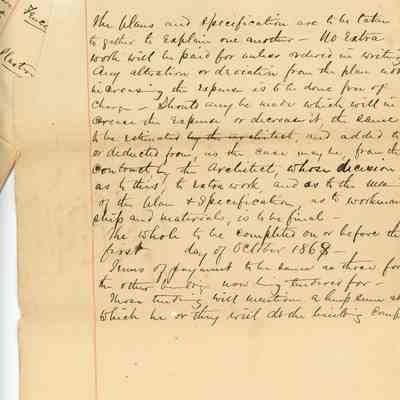 Fence
Plaster
The plans and specification are to be taken
together to explain one another — No Extra
work will be paid for unless ordered in writing
Any altration or deveation from the plan not
increasing the expense is to be done free of
charge — Should any be made which will in
crease the expense or decrease it, the same
to be estimated by the architect, and added to
or deducted from, as the case may be, from the
contract by the Architect, whose decision
as to this, to extra work, and as to the
of the plan & Specification, as to workman
ship and materials, is to be final —
The whole to be completed on or before the
first day of October 1868 —
Terms of payment to be same as those for
the other now being tendered for —
Those tending will mention a lump sum
which he or they will do the building comp